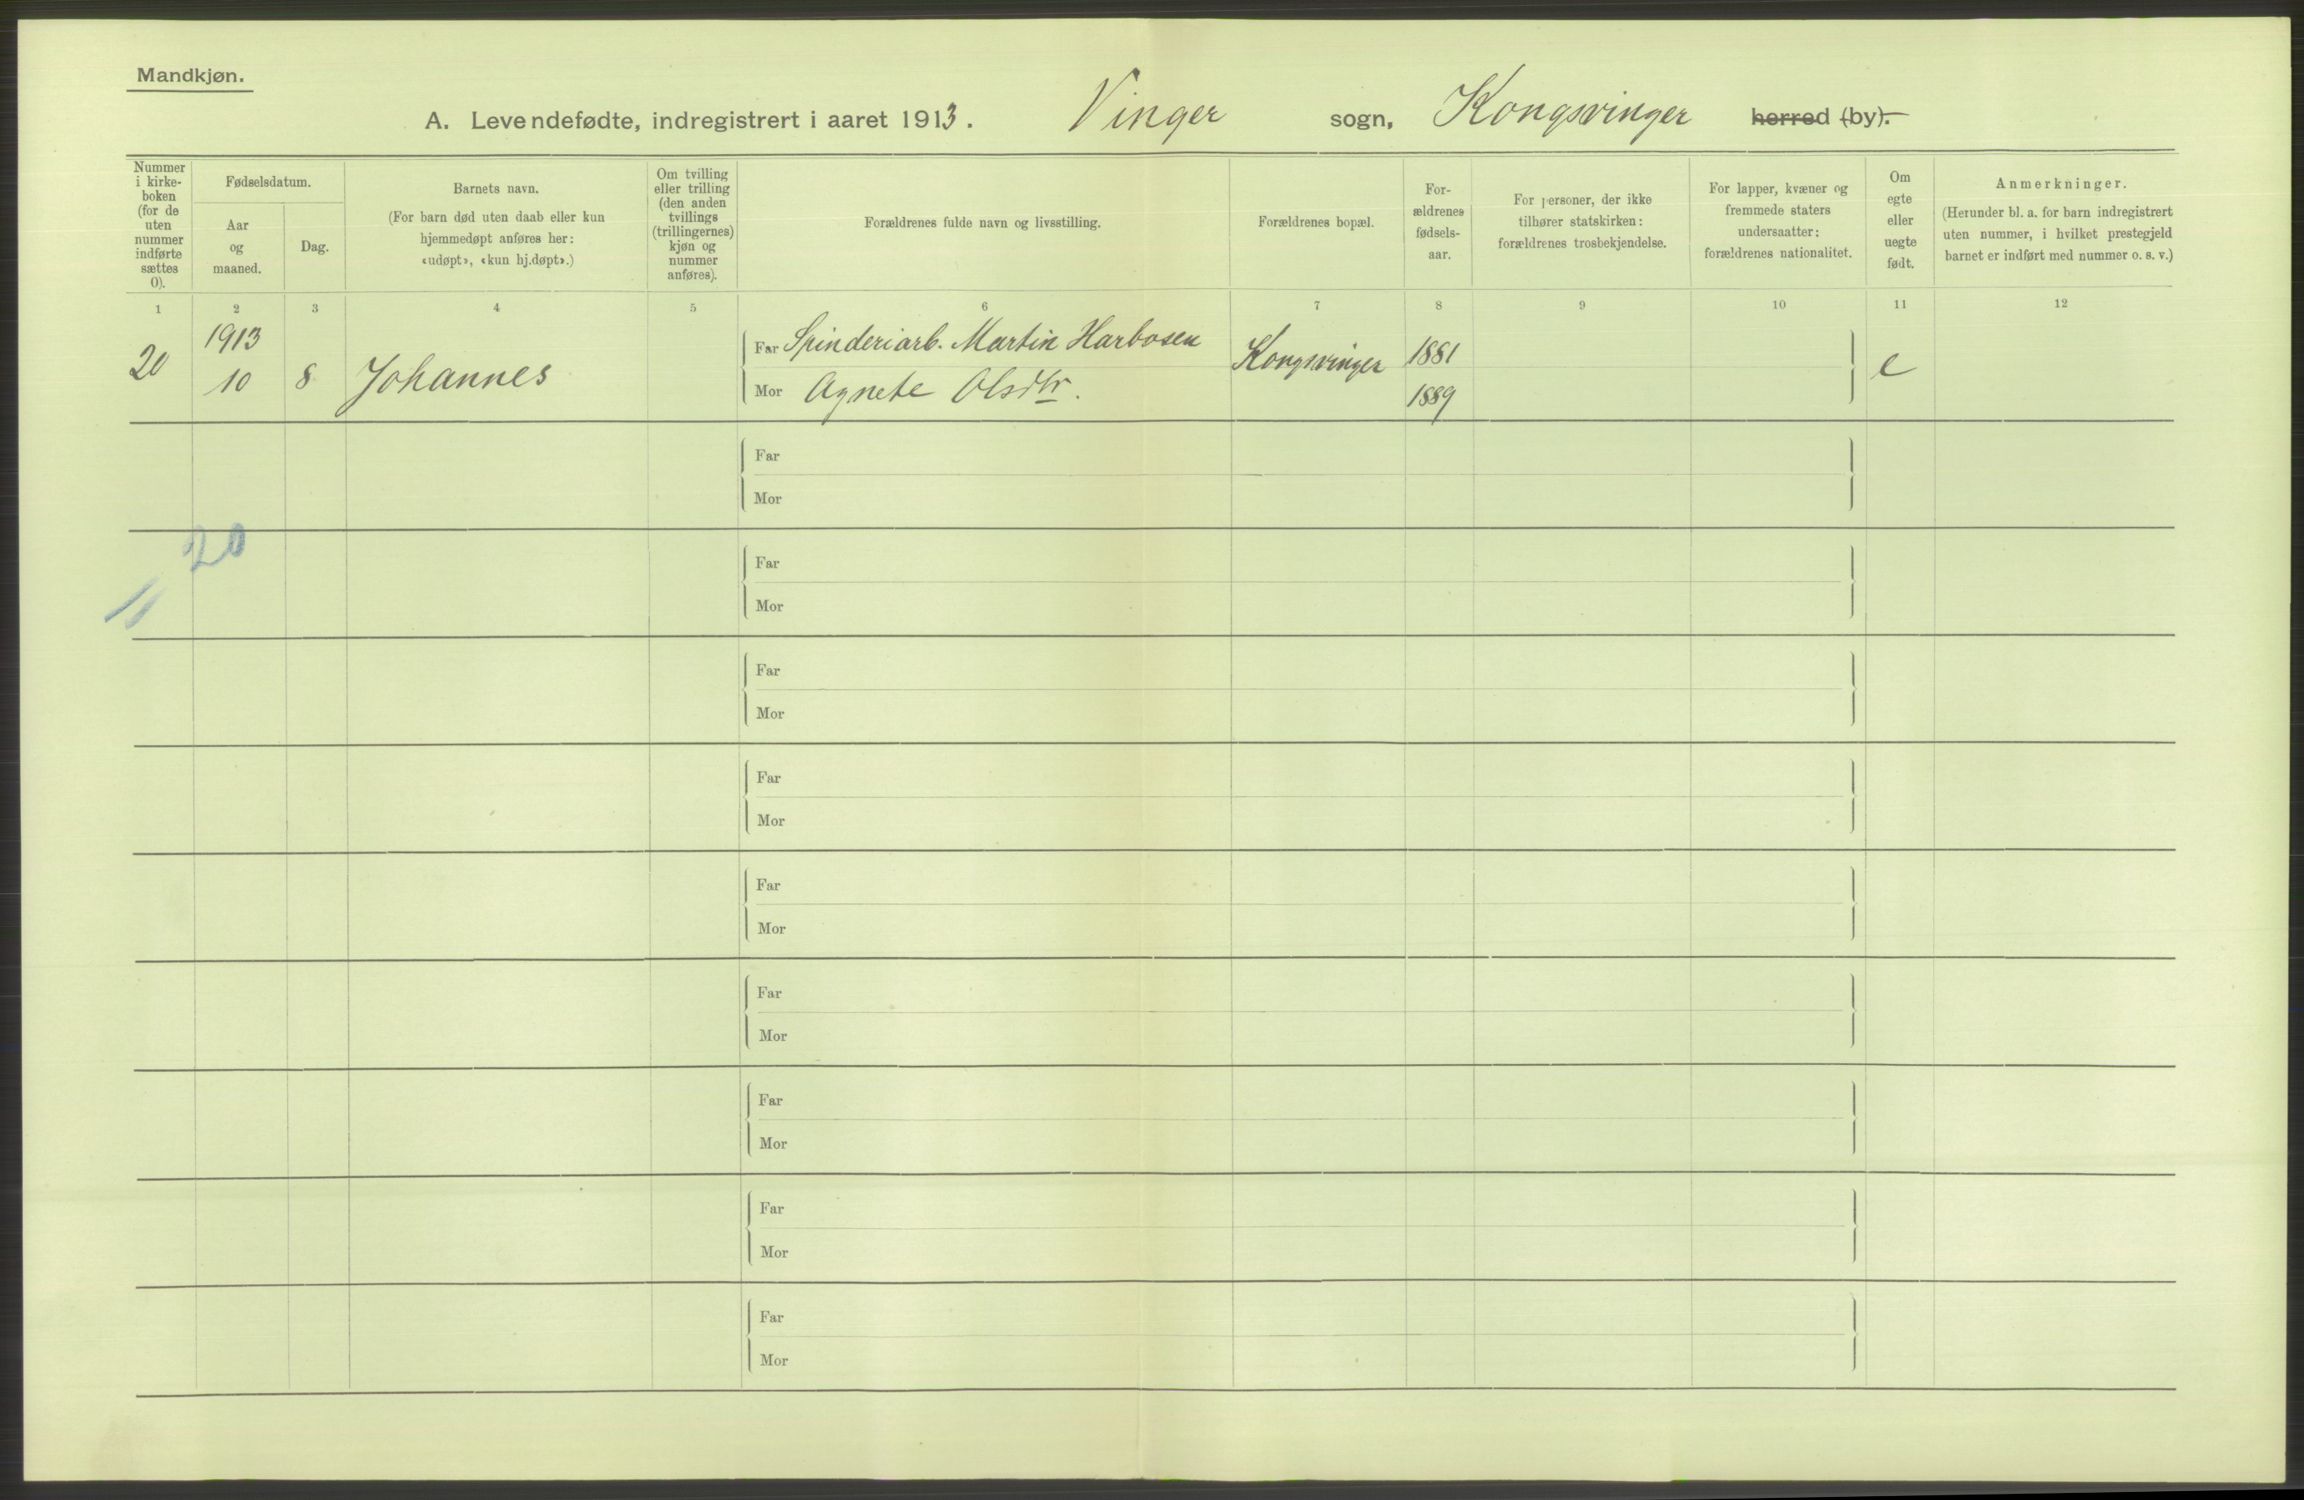 Mandkjøn.
A. Levendefødte, indregistrert i aaret 1913. Vinger sogn, Kongsvinger herred (by).
Nummer
i kirke-
boken
(for de
uten
nummer
indførte
sættes
0).
Fødselsdatum.
Aar
og
maaned.
Dag.
Barnets navn.
(For barn død uten daab eller kun
hjemmedøpt anføres her:
«udøpt», «kun hj.døpt».)
Om tvilling
eller trilling
(den anden
tvillings
(trillingernes)
kjøn og
nummer
anføres).
Forældrenes fulde navn og livsstilling.
Forældrenes bopæl.
For-
ældrenes
fødsels-
aar.
For personer, der ikke
tilhører statskirken:
forældrenes trosbekjendelse.
For lapper, kvæner og
fremmede staters
undersaatter:
forældrenes nationalitet.
Om
egte
eller
uegte
født.
Anmerkninger.
(Herunder bl. a. for barn indregistrert
uten nummer, i hvilket prestegjeld
barnet er indført med nummer o. s. v.)
1 2 3 4 5 6 7 8 9 10 11 12
20 1913
10 8 Johannes
Far Spinderiarb. Martin Harbosen Kongsvinger 1881 e
Mor Agnete Olsdtr. 1889
Far
Mor
20
Far
Mor
Far
Mor
Far
Mor
Far
Mor
Far
Mor
Far
Mor
Far
Mor
Far
Mor